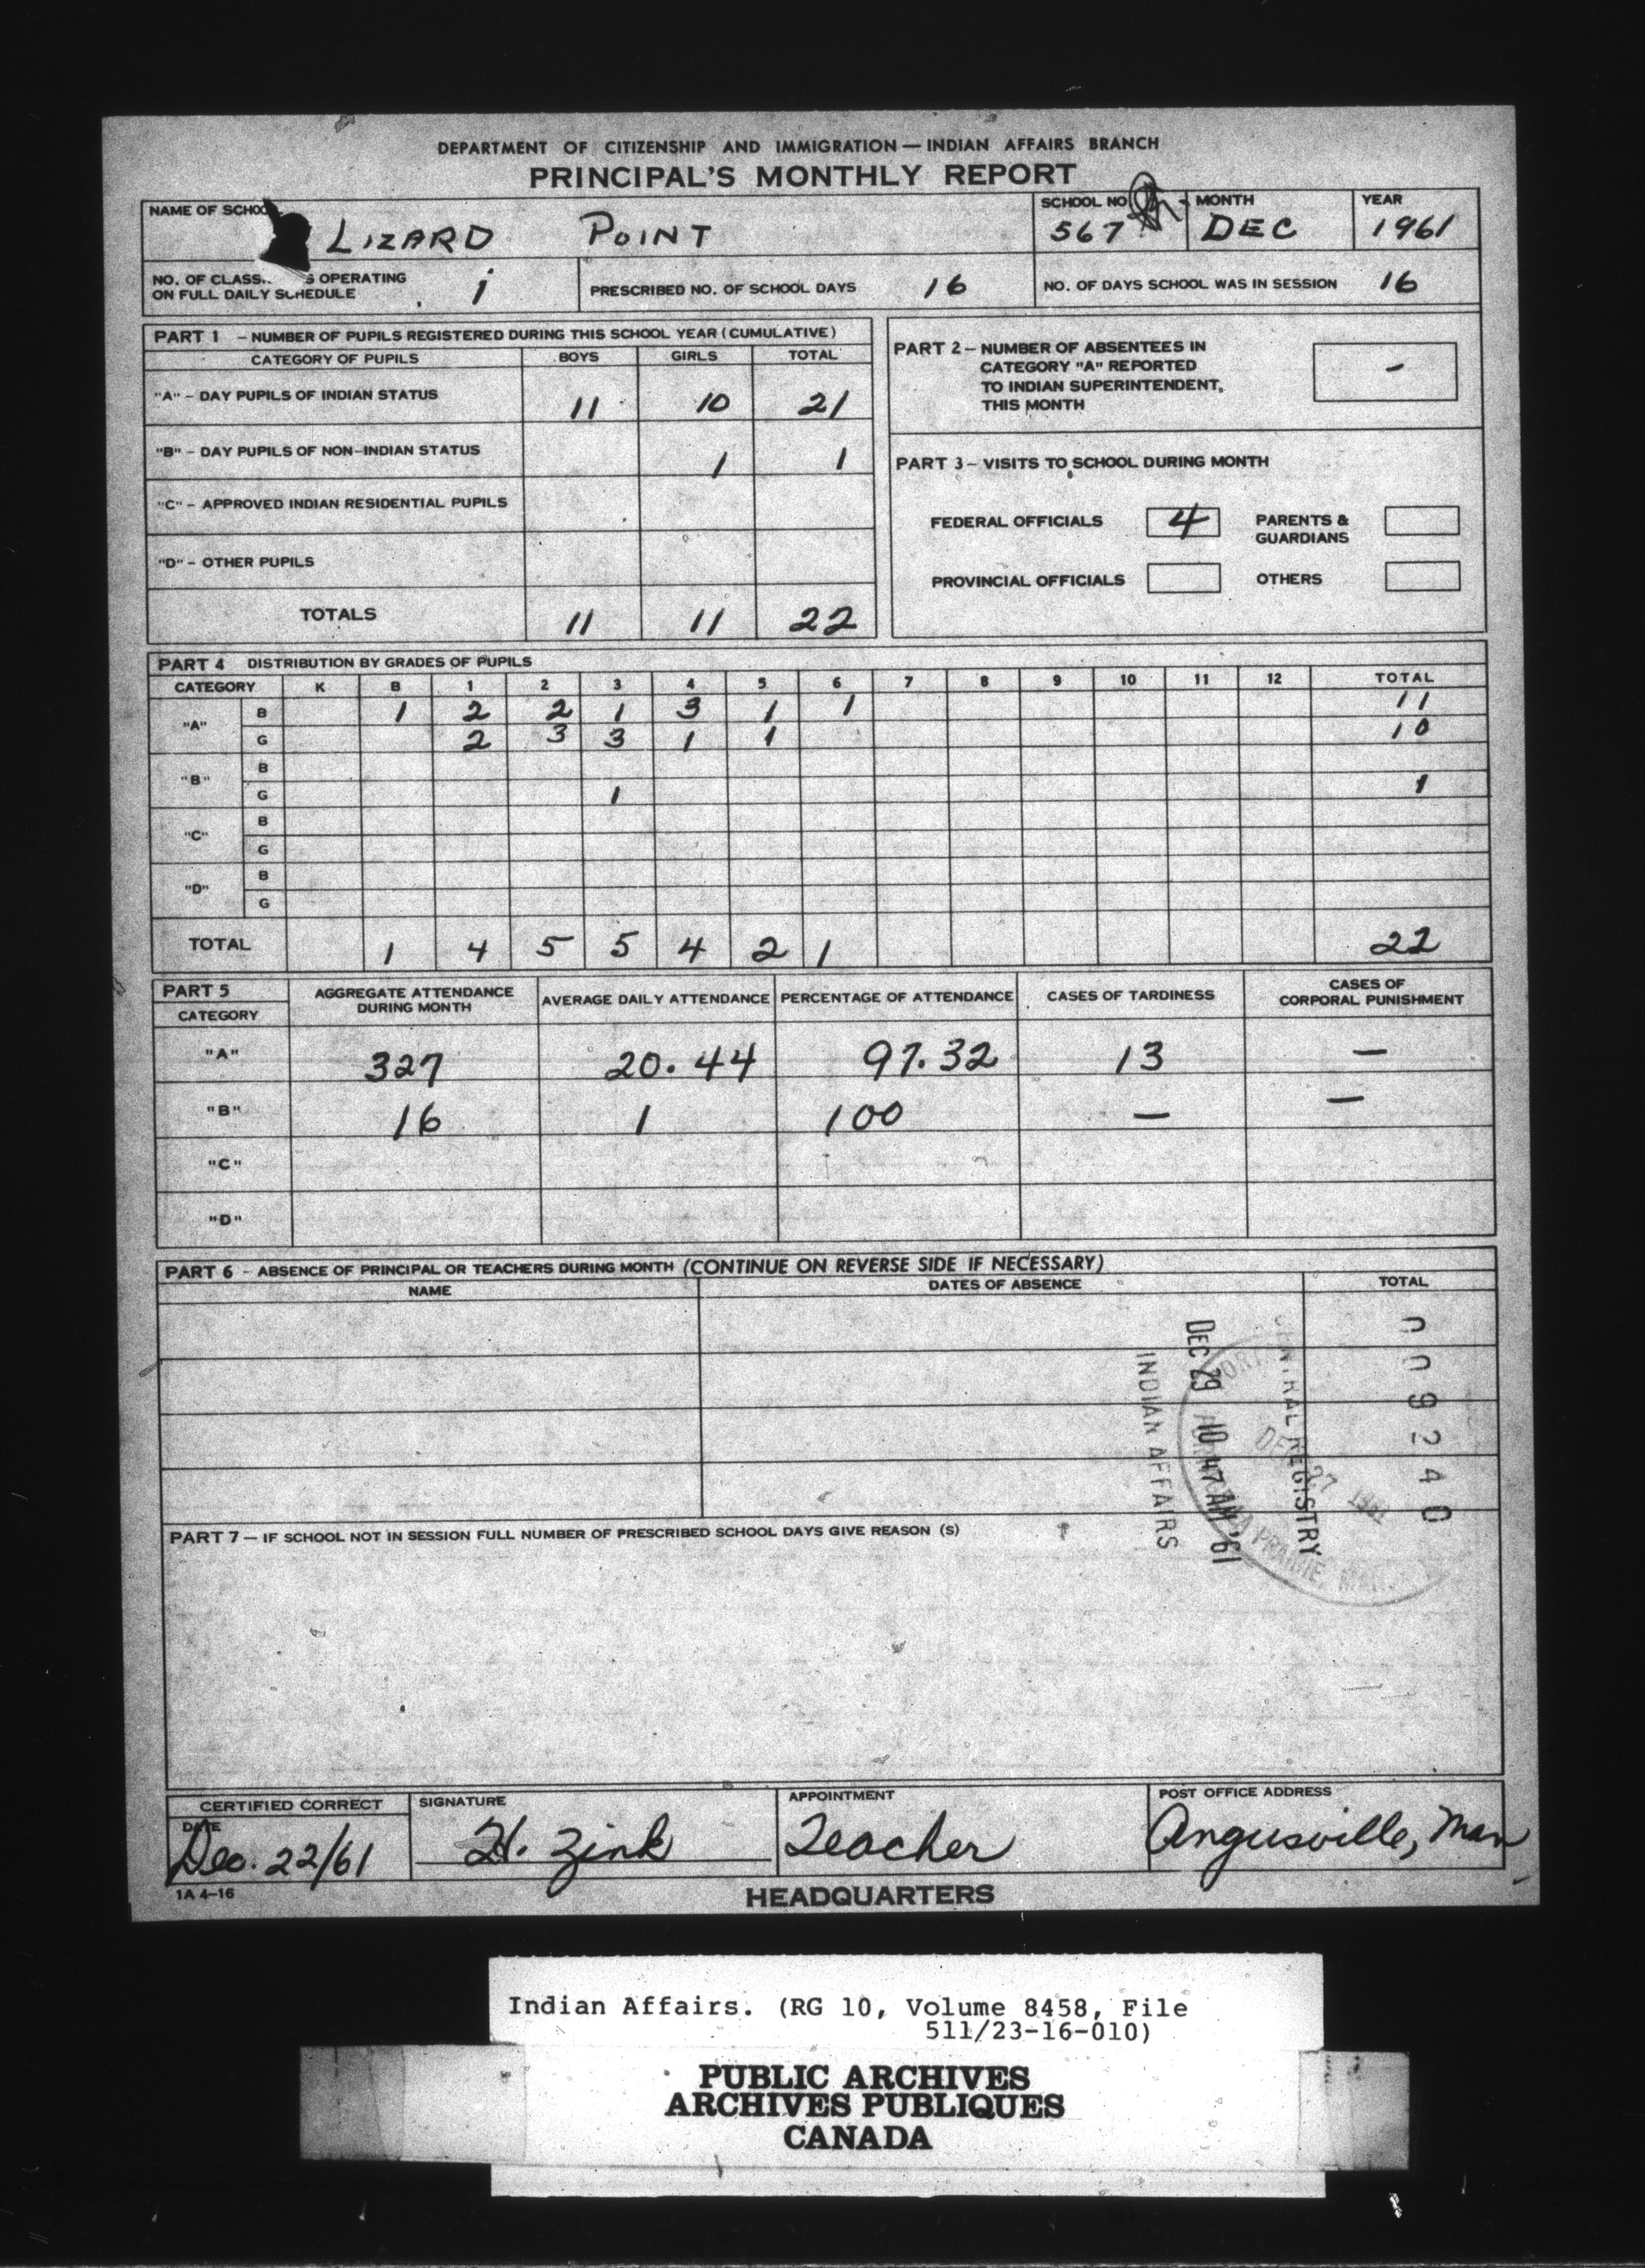 DEPARTMENT OF CITIZENSHIP AND IMMIGRATION — INDIAN AFFAIRS BRANCH
PRINCIPAL'S MONTHLY REPORT
NAME OF SCHOOL LIZARD POINT
SCHOOL NO 567
MONTH DEC
YEAR 1961
NO. OF CLASS S OPERATING ON FULL DAILY SCHEDULE 1
PRESCRIBED NO. OF SCHOOL DAYS 16
NO. OF DAYS SCHOOL WAS IN SESSION 16
PART 1 – NUMBER OF PUPILS REGISTERED DURING THIS SCHOOL YEAR (CUMULATIVE)
CATEGORY OF PUPILS BOYS GIRLS TOTAL
"A" – DAY PUPILS OF INDIAN STATUS 11 10 21
"B" – DAY PUPILS OF NON-INDIAN STATUS 1 1
"C" – APPROVED INDIAN RESIDENTIAL PUPILS
"D" – OTHER PUPILS
TOTALS 11 11 22
PART 2 – NUMBER OF ABSENTEES IN
CATEGORY "A" REPORTED
TO INDIAN SUPERINTENDENT,
THIS MONTH –
PART 3 – VISITS TO SCHOOL DURING MONTH
FEDERAL OFFICIALS 4 PARENTS & GUARDIANS
PROVINCIAL OFFICIALS OTHERS
PART 4 DISTRIBUTION BY GRADES OF PUPILS
CATEGORY K B 1 2 3 4 5 6 7 8 9 10 11 12 TOTAL
"A" B 1 2 2 1 3 1 1 11
G 2 3 3 1 1 10
"B" B
G 1 1
"C" B
G
"D" B
G
TOTAL 1 4 5 5 4 2 1 22
PART 5
CATEGORY AGGREGATE ATTENDANCE DURING MONTH AVERAGE DAILY ATTENDANCE PERCENTAGE OF ATTENDANCE CASES OF TARDINESS CASES OF CORPORAL PUNISHMENT
"A" 327 20.44 97.32 13 –
"B" 16 1 100 – –
"C"
"D"
PART 6 – ABSENCE OF PRINCIPAL OR TEACHERS DURING MONTH (CONTINUE ON REVERSE SIDE IF NECESSARY)
NAME DATES OF ABSENCE TOTAL
009240
REGISTRY
DEC 29 10 47 AM '61
INDIAN AFFAIRS
DEC 27 1961
PRAIRIE, MAN.
PART 7 — IF SCHOOL NOT IN SESSION FULL NUMBER OF PRESCRIBED SCHOOL DAYS GIVE REASON (S)
CERTIFIED CORRECT
DATE
Dec. 22/61
SIGNATURE
H. Zink
APPOINTMENT
Teacher
POST OFFICE ADDRESS
Angusville, Man
1A 4-16
HEADQUARTERS
Indian Affairs. (RG 10, Volume 8458, File
511/23-16-010)
PUBLIC ARCHIVES
ARCHIVES PUBLIQUES
CANADA